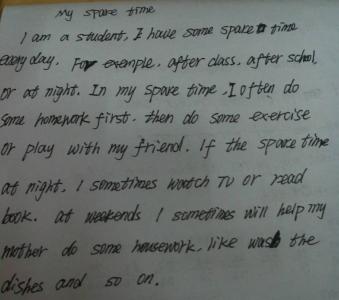 My spare time
I am a student, I have some spare time
every day. For exemple, after class, after school,
or at night. In my spare time, I often do
some homework first, then do some exercise
or play with my friend. If the spare time
at night, I sometimes watch TV or read
book. at weekends I sometimes will help my
mother do some housework, like wash the
dishes and so on.